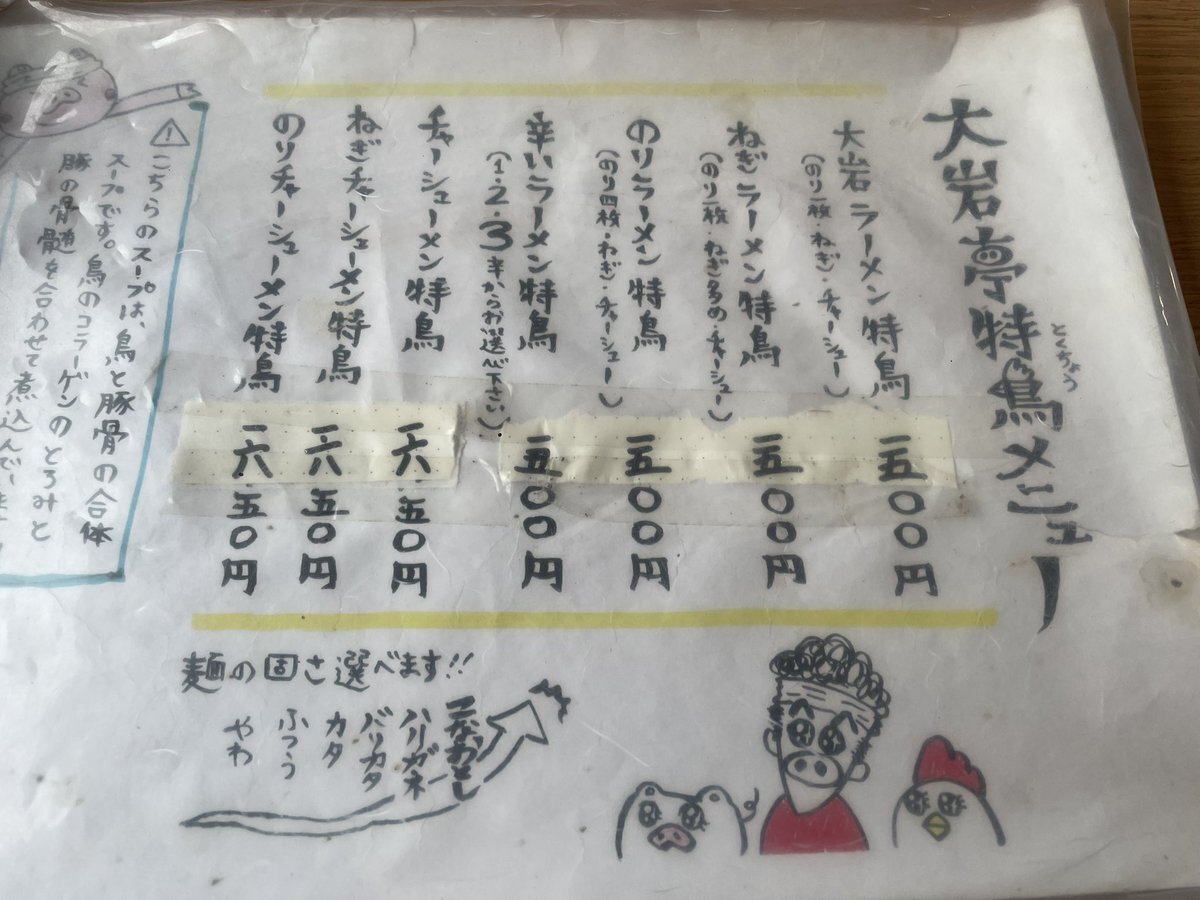 大岩亭特鳥メニュー
とくちょう
大岩ラーメン特鳥 一五〇〇円
(のり一枚・ねぎ・チャーシュー)
ねぎラーメン特鳥 一五〇〇円
(のり一枚・ねぎ多め・チャーシュー)
のりラーメン特鳥 一五〇〇円
(のり四枚・ねぎ・チャーシュー)
辛いラーメン特鳥 一五〇〇円
(1・2・3辛からお選び下さい)
チャーシューメン特鳥 一六五〇円
ねぎチャーシューメン特鳥 一六五〇円
のりチャーシューメン特鳥 一六五〇円
こちらのスープは、鳥と豚骨の合体
スープです。鳥のコラーゲンのとろみと
豚の骨髄を合わせて煮込んでいま
麺の固さ選べます!!
こなおとし
ハリガネ
バリカタ
カタ
ふつう
やわ